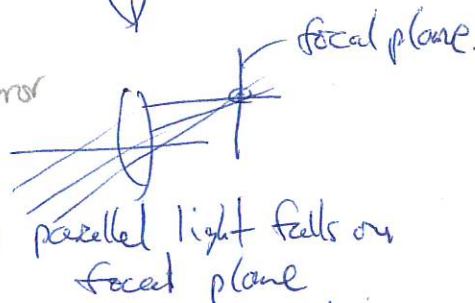 focal plane.
ror
parallel light falls on
focal plane